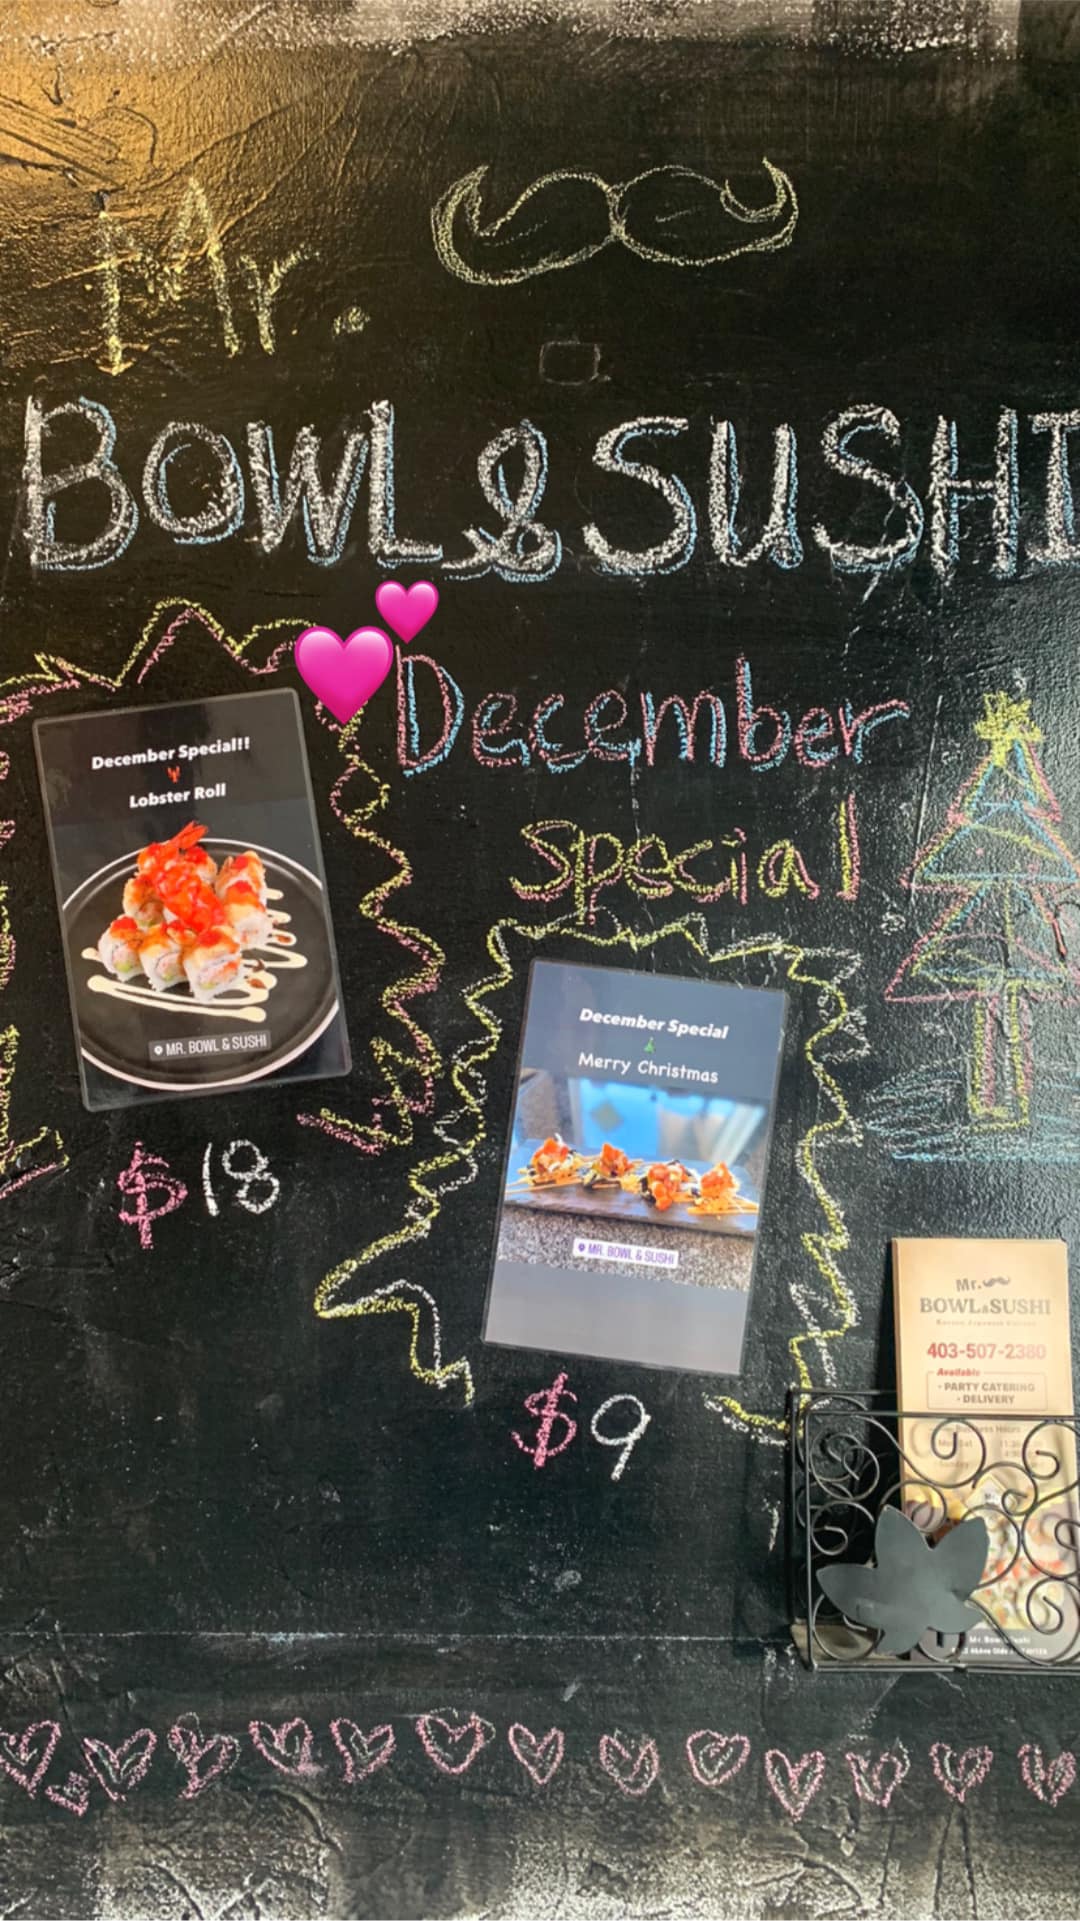 Mr.
BOWL & SUSHI
December
Special
December Special!!
Lobster Roll
MR. BOWL & SUSHI
$18
December Special
Merry Christmas
MR. BOWL & SUSHI
$9
Mr.
BOWL & SUSHI
403-507-2380
Available
· PARTY CATERING
· DELIVERY